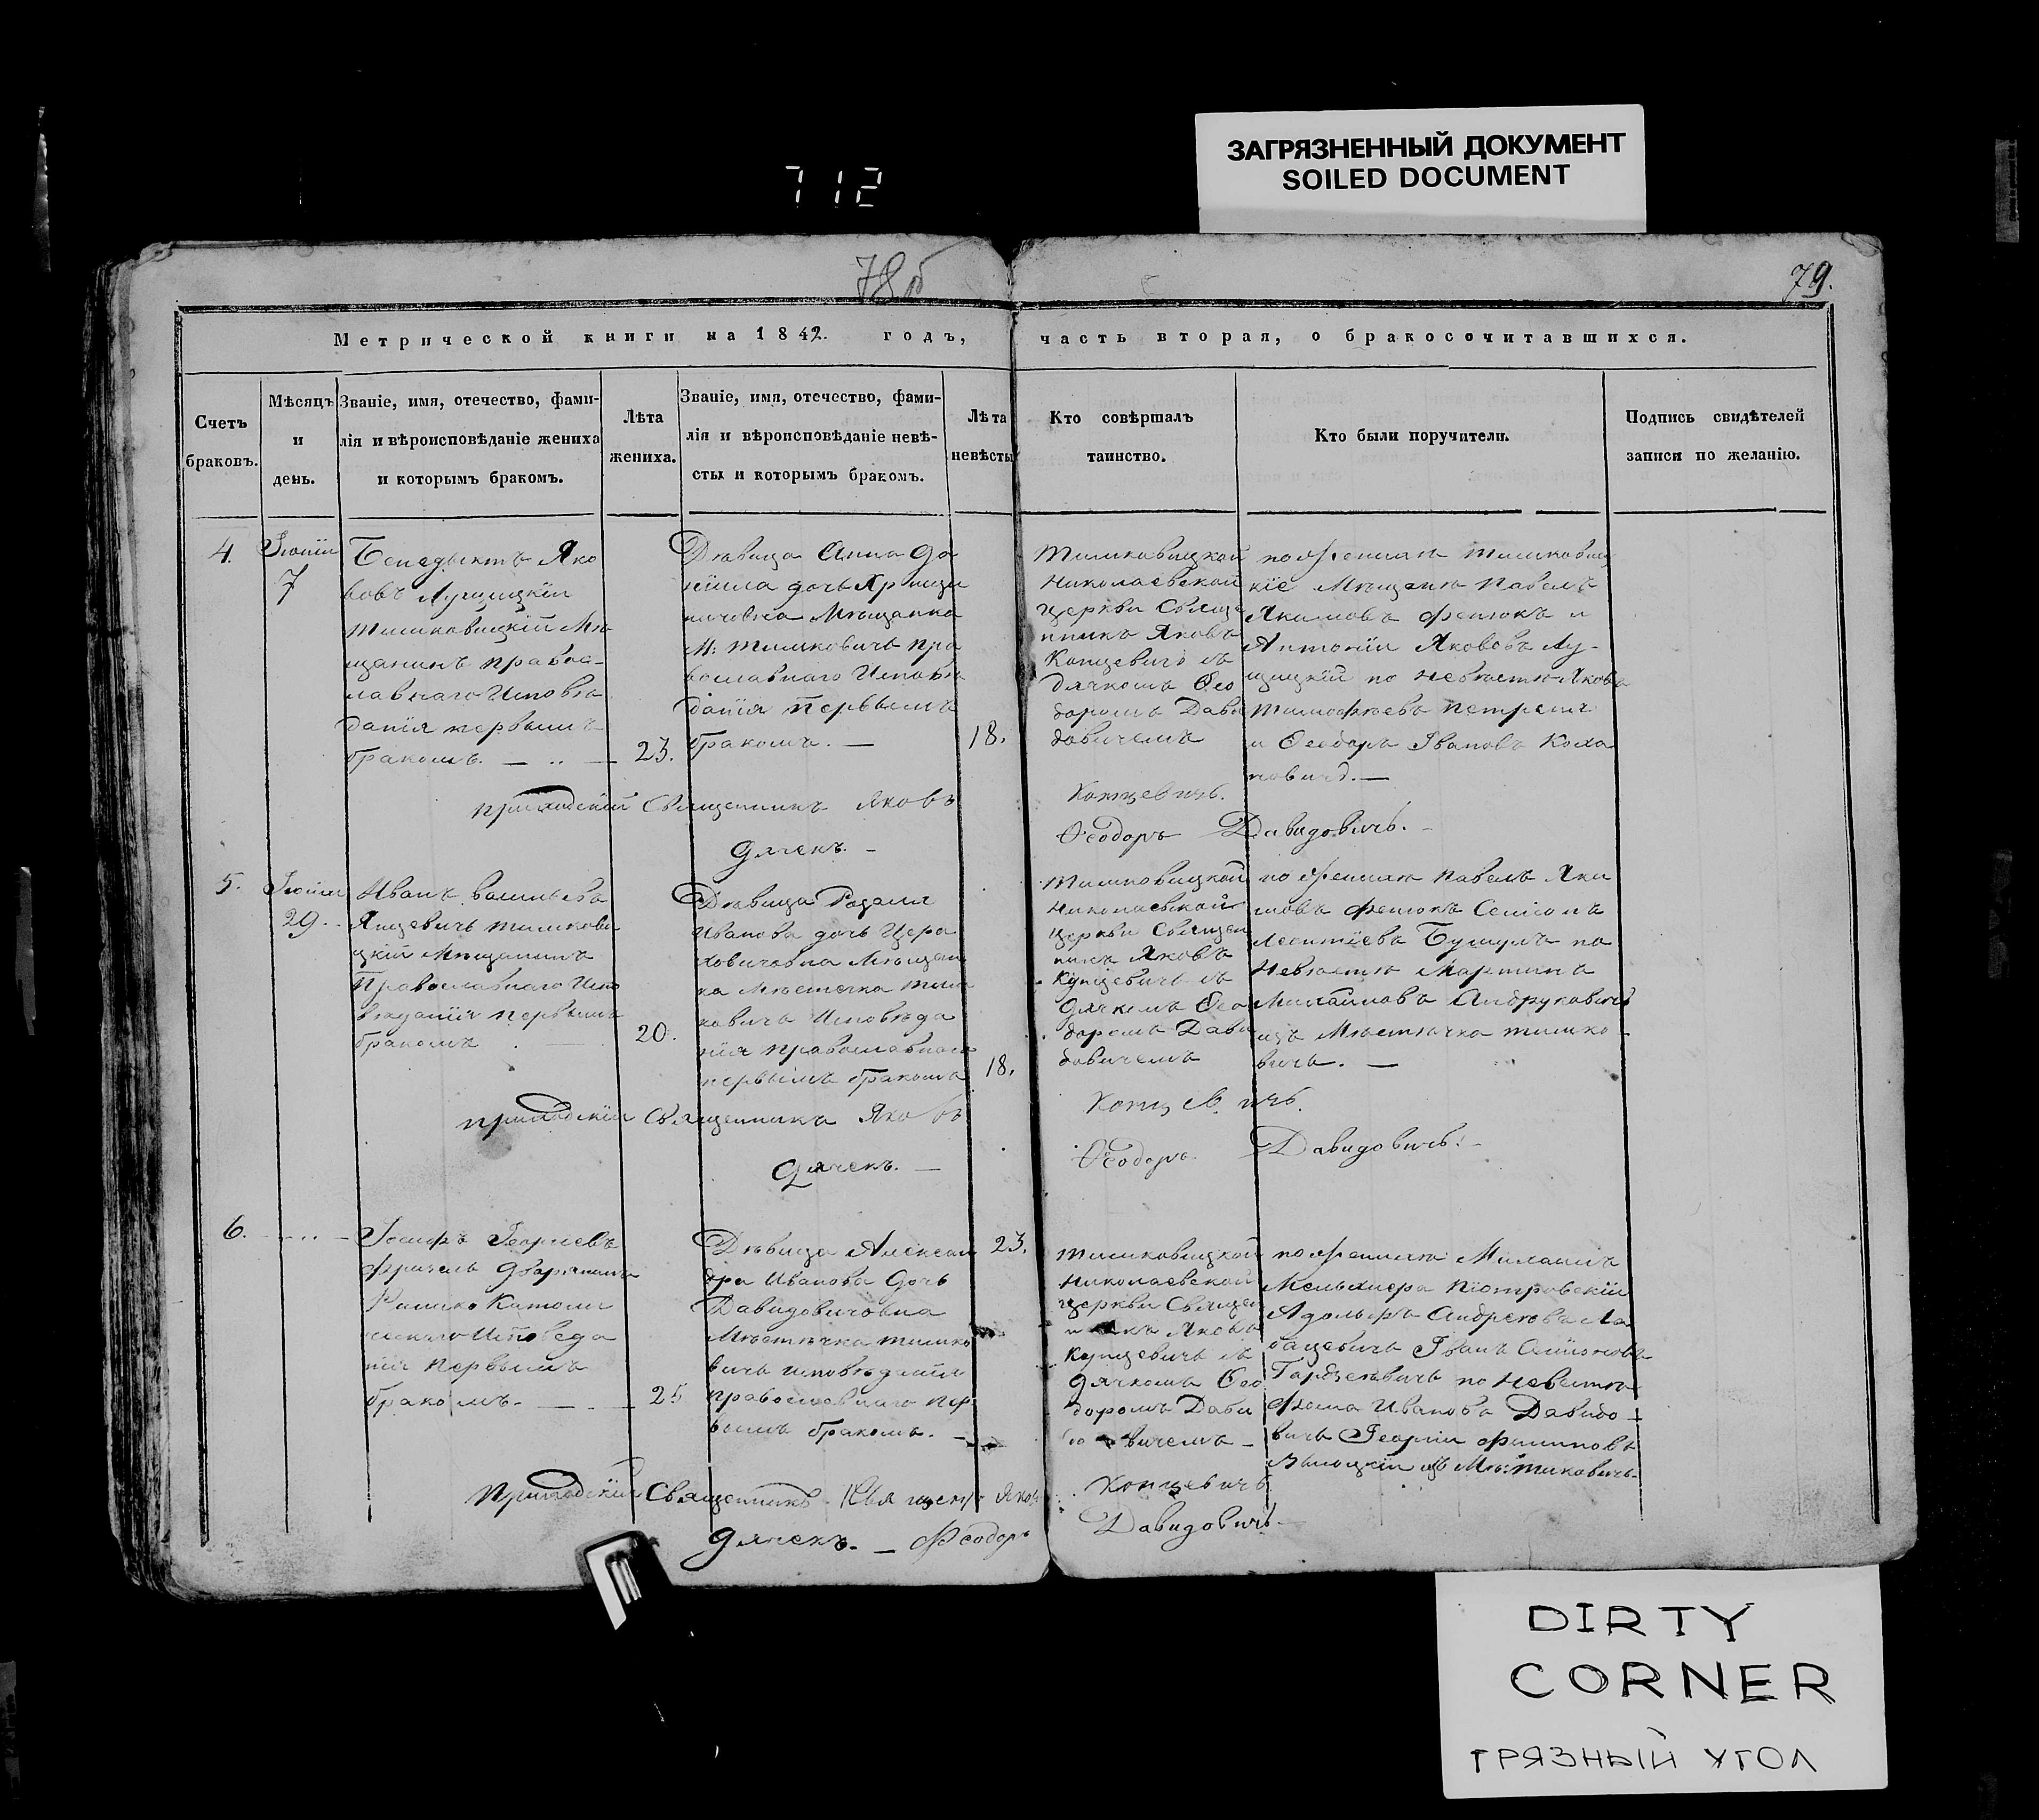 712
ЗАГРЯЗНЕННЫЙ ДОКУМЕНТ
SOILED DOCUMENT
78 об
79.
Метрической книги на 1842. годъ,
часть вторая, о бракосочитавшихся.
Счетъ
браковъ.
Мѣсяцъ
и
день.
Званіе, имя, отечество, фами-
лія и вѣроисповѣданіе жениха
и которымъ бракомъ.
Лѣта
жениха.
Званіе, имя, отечество, фами-
лія и вѣроисповѣданіе невѣ-
сты и которымъ бракомъ.
Лѣта
невѣсты
Кто совѣршалъ
таинство.
Кто были поручители.
Подпись свидѣтелей
записи по желанію.
4.
7
Бенедыктъ Яко
вовъ Лущицкій
тимковицкій Мѣ
щанинъ правос-
лавнаго Исповѣ
данія первымъ
бракомъ.
23.
Дѣвица Анна Да
ніила дочь
Мѣщанка
М: тимковичь пра
вославнаго Исповѣ
данія первымъ
бракомъ. —
18.
тимковицкой
Николаевской
церкви Свяще
нникъ Яковъ
Концевичь съ
дячкомъ Ѳео
доромъ Дави
довичемъ
кіе Мѣщане Павелъ
Якимовъ Фетюкъ и
Антоній Яковов Лу-
щицкій по невѣстѣ Яковъ
Тимофѣевъ
и Ѳеодоръ Івановъ Коха
новичъ. —
приходскій Священникъ Яковъ
Концевичь.
Дячекъ. -
Ѳеодоръ Давидовичь. -
5.
29.
Иванъ Васильевъ
Янцевичь тимкови
цкій Мѣщанинъ
Православнаго Испо
вѣданія первымъ
бракомъ
20.
Дѣвица Розалия
Иванова дочь Цера
ховичовна Мѣщан
ка Мѣстечка тим
ковичь Исповѣда
нія православнаго
первымъ бракомъ
18.
тимковицкой
Николаевской
церкви Священ
никъ Яковъ
Кунцевичь съ
Дячкомъ Ѳео
доромъ Дави
довичемъ
Павелъ Яки
мовъ Фетюкъ
Леонтіевъ на
Невѣстѣ Мартинъ
Михайловъ Андруковичь
изъ Мѣстѣчка тимко
вичь. —
приходскій Священникъ Яковъ
Концевичь.
Дячекъ. —
Ѳеодоръ Давидовичь. -
6.
Іосифъ
дворянинъ
Римско Католи
ческаго Исповеда
нія первымъ
бракомъ.
25
Дѣвица Алексан
дра Иванова Дочь
Давидовичовна
Мѣстѣчка тимко
вичь исповѣданія
православнаго пер
вымъ бракомъ. —
23.
тимковицкой
Николаевской
церкви Священ
Яковъ
Кунцевичь съ
Дячкомъ Ѳео
доромъ Дави
вичемъ —
Михаилъ
Мельхиора Піотровскій
Адольфъ Андреевъ
Іванъ
по Невестѣ
Фома Иванова Давидо-
вичь Георгій Филиповъ
Приходскій Священникъ Яковъ
Концевичь
Дячекъ. — Феодоръ
Давидовичь.
DIRTY
CORNER
ГРЯЗНЫЙ УГОЛ